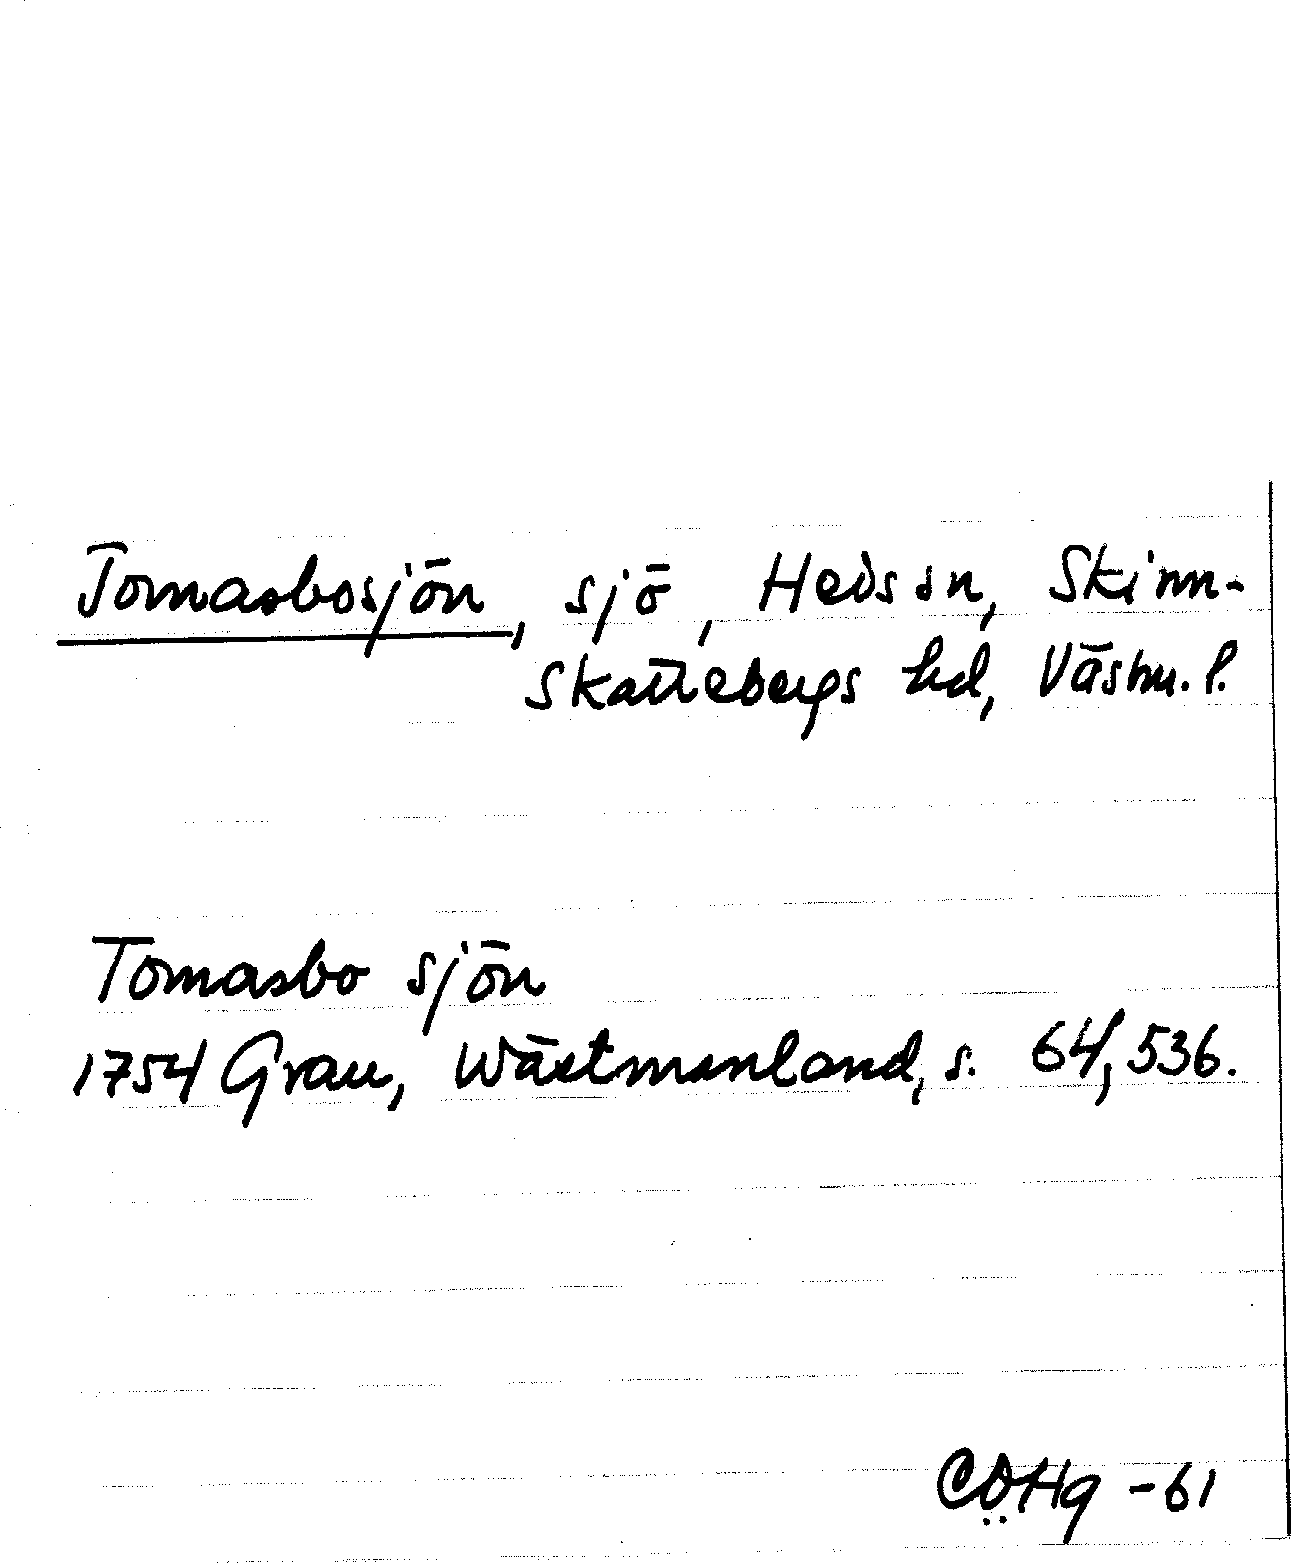 Tomasbosjön, sjö, Hedsån, Skinn-
Skattebergs hd, Västm. l.
Tomasbo sjön
1754 Grau, Wästmanland, s. 64, 536.
CÖHg -61